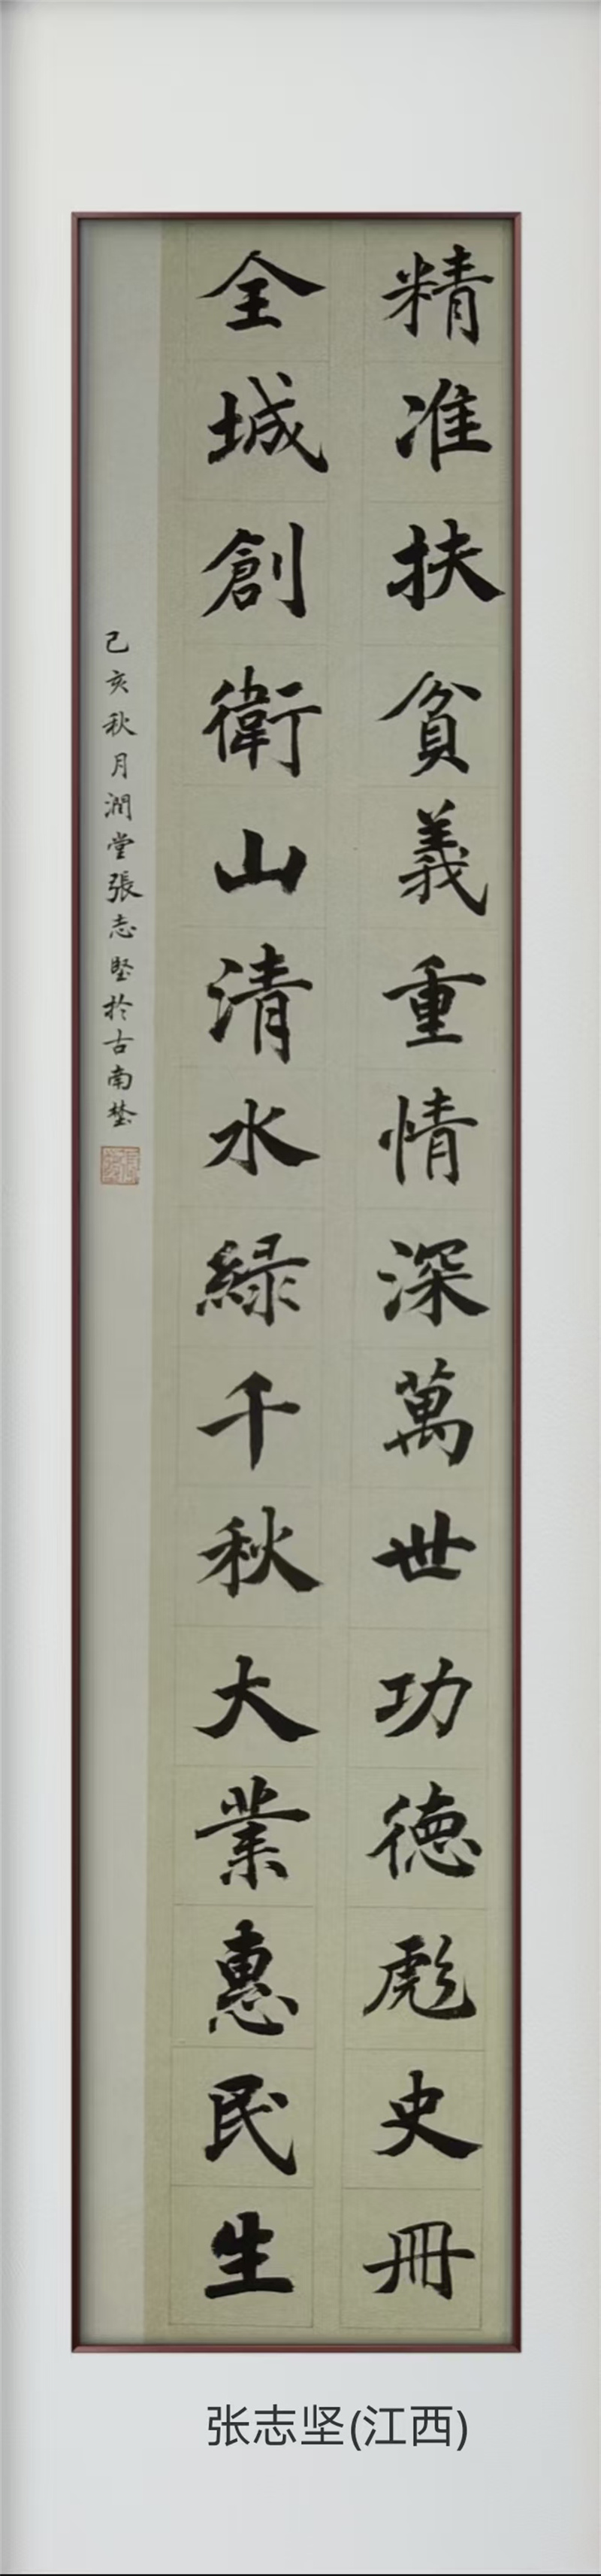 精准扶貧義重情深萬世功德彪史冊
全城創衛山清水緑千秋大業惠民生
己亥秋月潤堂張志堅於古南埜
张志坚(江西)